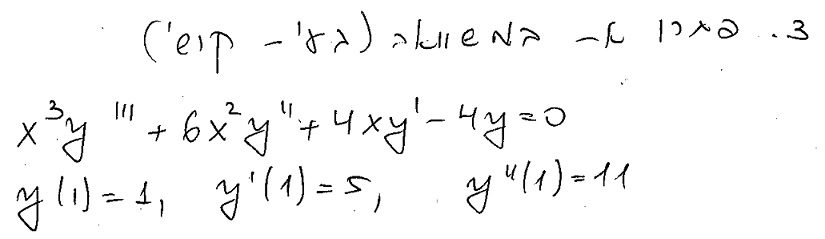 3. פתרו את המשוואה (בעי' קושי)
x³y''' + 6x²y'' + 4xy' - 4y = 0
y(1) = 1, y'(1) = 5, y''(1) = 11